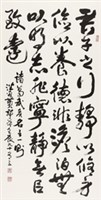 君子之行静以修身
俭以养德非澹泊无
以明志非宁静无以
致远
诸葛武侯名言一则